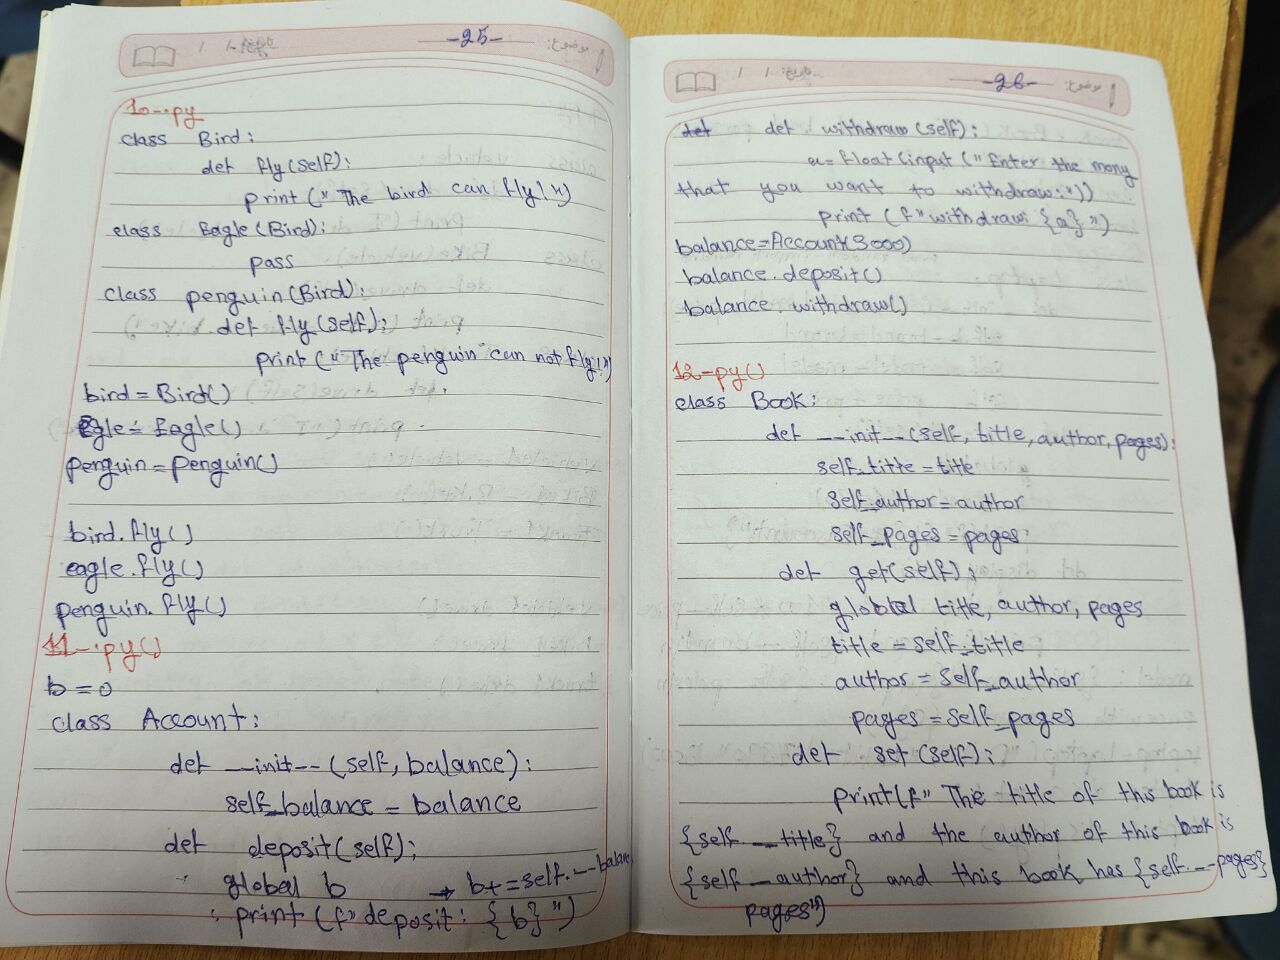 -25-
موضوع:
تاریخ: / /
10-.py
class Bird:
def fly(self):
print("The bird can fly!")
class Eagle(Bird):
pass
class penguin(Bird):
def fly(self):
print("The penguin can not fly!")
bird = Bird()
Egle = Eagle()
penguin = penguin()
bird.fly()
eagle.fly()
penguin.fly()
11-.py()
b = 0
class Account:
def __init__(self, balance):
self_balance = balance
def deposit(self):
global b → b+=self.__balance
print(f"deposit: {b}")
-26-
موضوع:
تاریخ: / /
def def withdraw(self):
a= float(input("Enter the mony
that you want to withdraw:"))
print(f"withdraw: {a}")
balance=Account(3000)
balance.deposit()
balance.withdraw()
12-py()
class Book:
def __init__(self, title, author, pages):
self_title = title
self_author = author
self_pages = pages
def get(self):
global title, author, pages
title = self_title
author = self_author
pages = self_pages
def set(self):
print(f"The title of this book is
{self.__title} and the author of this book is
{self_author} and this book has {self.__pages}
pages")